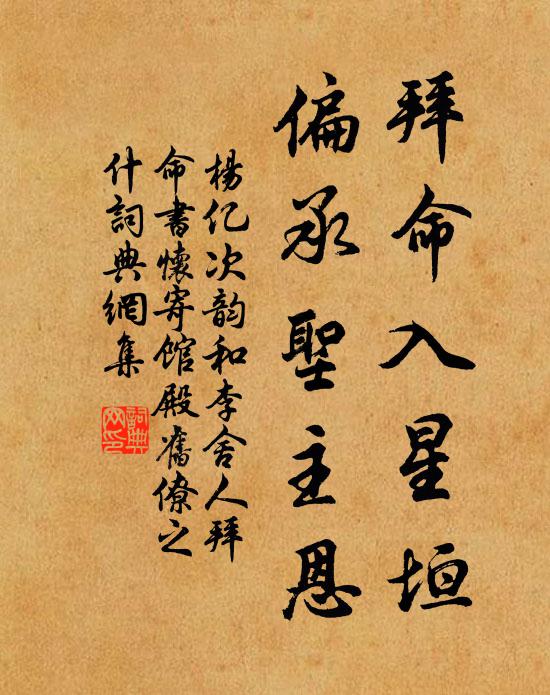 拜命入星垣
偏承聖主恩
楊亿次韵和李舍人拜
命書懷寄館殿舊僚之
什詞典網集
詞典
网印